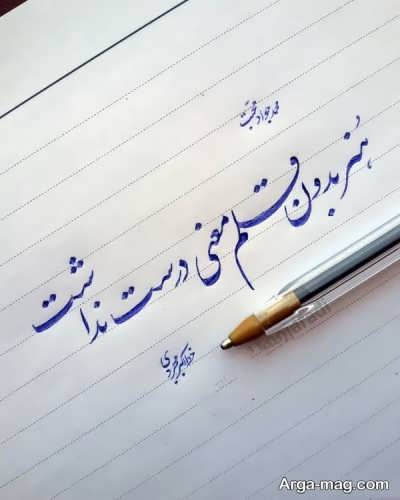 محمدجواد محبت
هنر بدون قلم معنی درست نداشت
Arga-mag.com